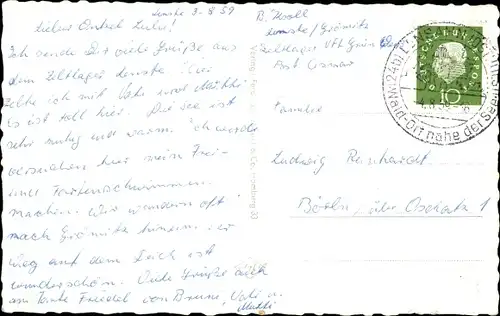 Lenste 3.8.59
Lieber Onkel Lulu!
Ich sende Dir viele Grüße aus
dem Zeltlager Lenste. Hier
zelte ich mit Vati und Mutti
Es ist toll hier. Die See ist
sehr ruhig und warm. Ich werde
versuchen hier mein Frei-
und Fahrtenschwimmen
machen. Wir wandern oft
nach Grömitz hinein. Der
Weg auf dem Deich ist
wunderschön. Viele Grüße auch
an Tante Friedel von Bruno, Vati u.
Mutti
B.
Lenste/Grömitz
Zeltlager
Post Cismar
Familie
Ludwig Reinhardt
Börln, über Oschatz 1
DEUTSCHE BUNDESPOST
10
(24b)
Wald-Ort nahe der See